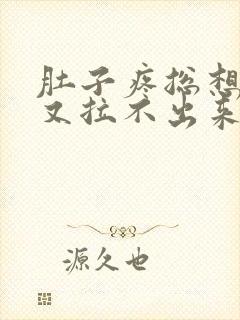 肚子疼总想
又拉不出来
源久也